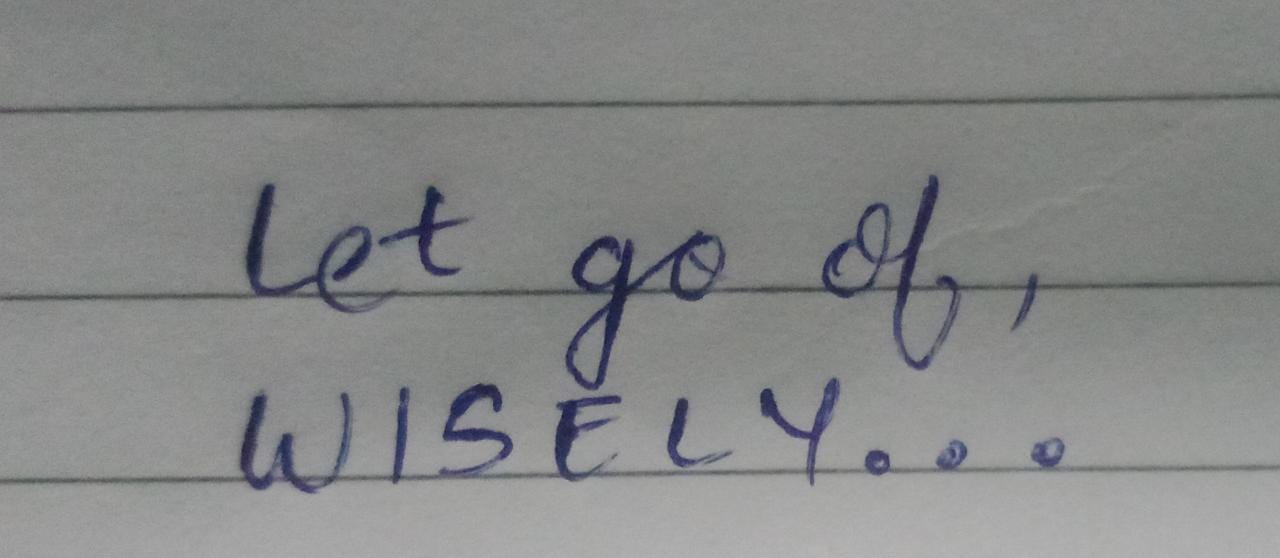 Let go of,
WISELY...